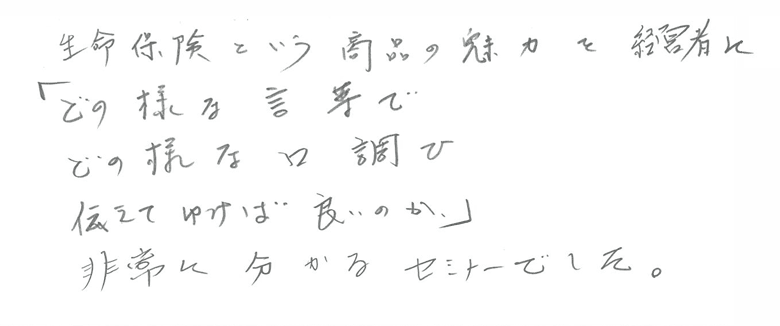 生命保険という商品の魅力を経営者に
「どの様な言葉で
どの様な口調で
伝えてゆけば良いのか」
非常に分かるセミナーでした。